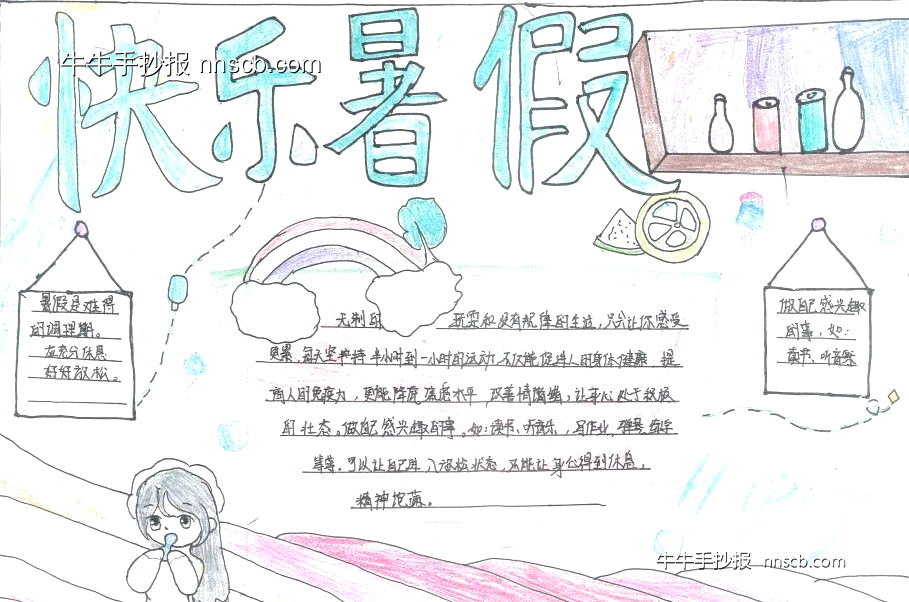 快乐暑假
牛牛手抄报 nnscb.com
暑假是难得
的调理期。
应充分休息
好好放松。
无制的 玩耍和没有规律的生活,只会让你感受
更累,每天坚持 半小时到一小时的运动 不仅能促进人的身体健康,提
高人的免疫力,更能降底 水平,改善情绪,让身心处于积极
的状态。做自己感兴趣的事。如:读书、听音乐,写作业,弹琴
等等,可以让自己进入放松状态,还能让身心得到休息,
精神饱满。
做自己感兴趣
的事,如:
读书、听音乐
牛牛手抄报 nnscb.com